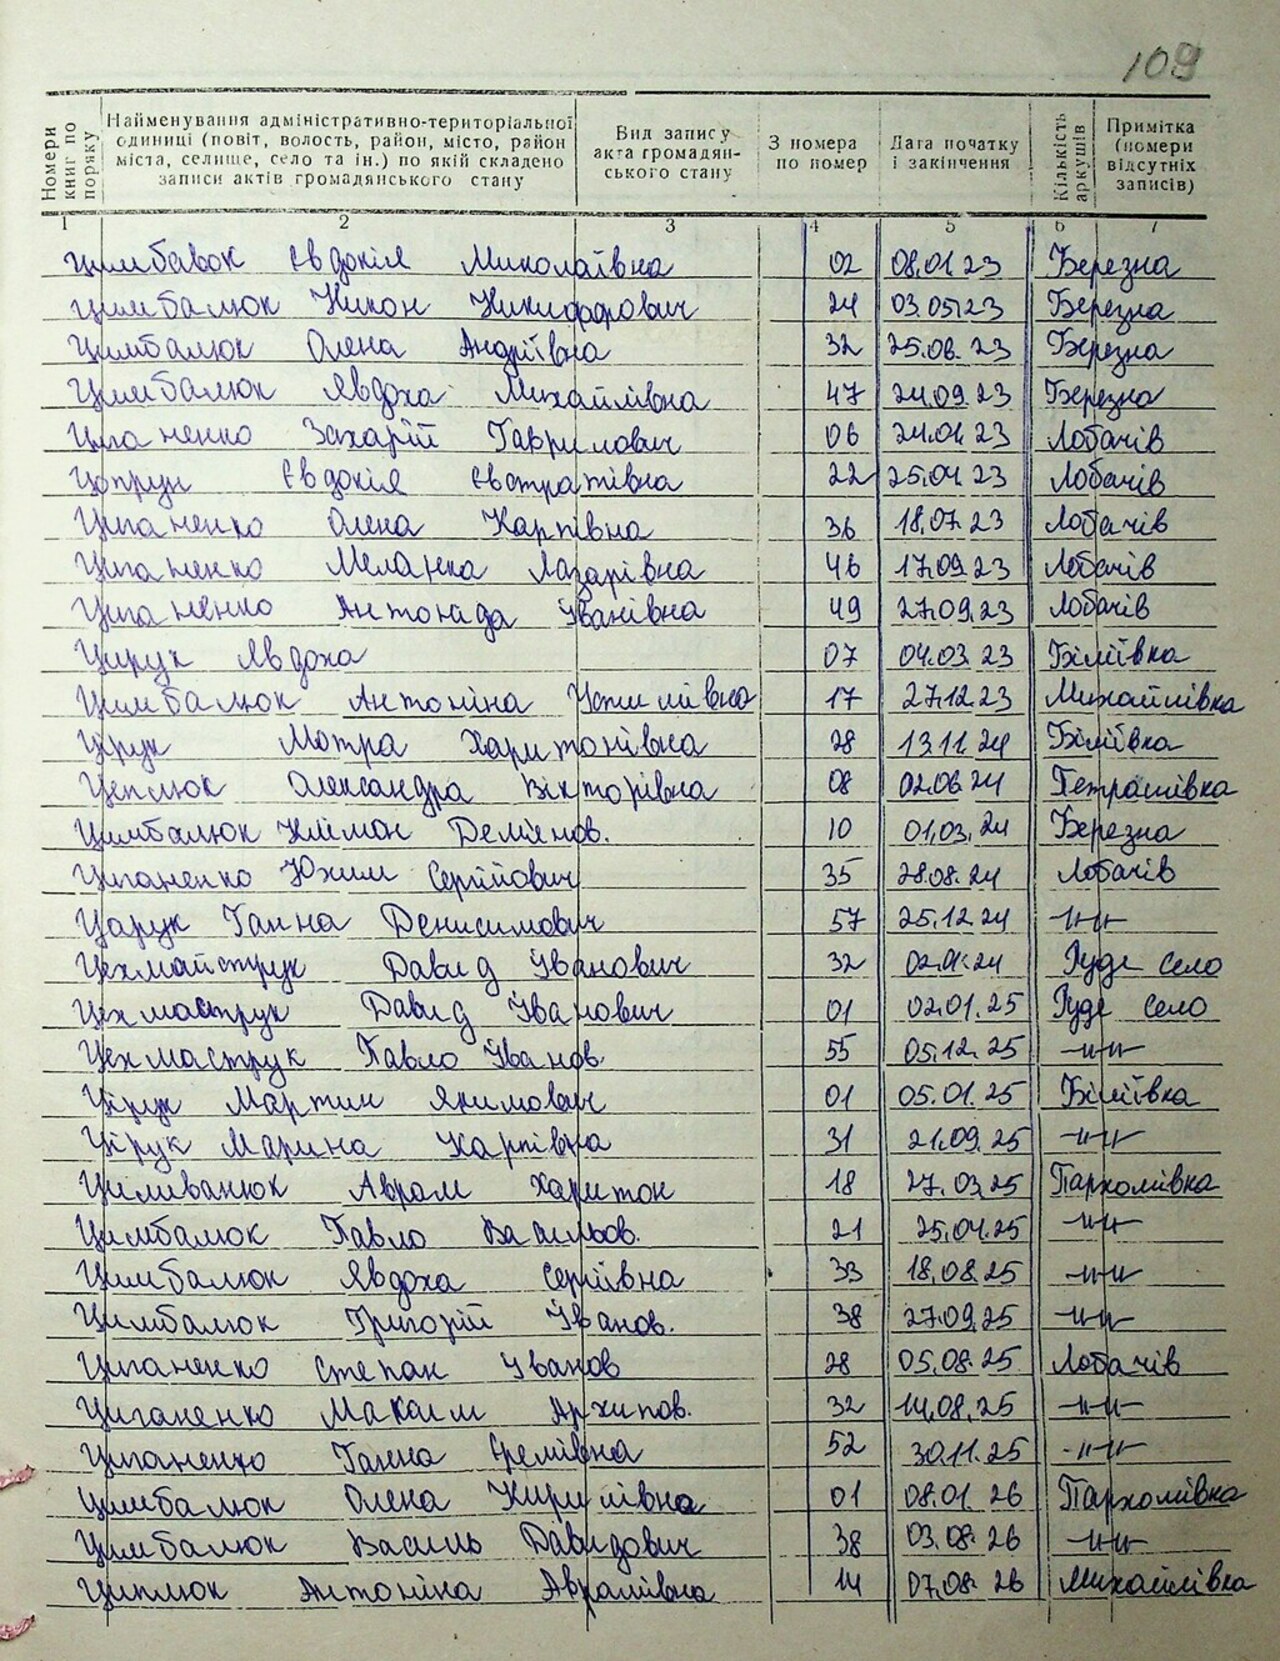 109
Номери книг по поряку
Найменування адміністративно-територіальної одиниці (повіт, волость, район, місто, район міста, селище, село та ін.) по якій складено записи актів громадянського стану
Вид запису акта громадян-ського стану
З номера по номер
Дата початку і закінчення
Кількість аркушів
Примітка (номери відсутніх записів)
1 2 3 4 5 6 7
Цимбавок Євдокія Миколаївна 02 08.01.23 Березна
Цимбалюк Никон Никифорович 24 03.05.23 Березна
Цимбалюк Олена Андріївна 32 25.06.23 Березна
Цимбалюк Явдоха Михайлівна 47 24.09.23 Березна
Циганенко Захарій Гаврилович 06 24.01.23 Лобачів
Цопрун Євдокія Євстратівна 22 25.04.23 Лобачів
Циганенко Олена Карпівна 36 18.07.23 Лобачів
Циганенко Меланка Лазарівна 46 17.09.23 Лобачів
Циганенко Антонида Іванівна 49 27.09.23 Лобачів
Цирук Явдоха 07 04.03.23 Біліївка
Цимбалюк Антоніна Устимівна 17 27.12.23 Михайлівка
Цірук Мотра Харитонівна 28 13.11.24 Біліївка
Цеплюк Олександра Вікторівна 08 02.06.24 Петрашівка
Цимбалюк Клімон Дем'енов. 10 01.03.24 Березна
Циганенко Юхим Сергійович 35 28.08.24 Лобачів
Царук Ганна Денисимович 57 25.12.24 -//-//-
Цехмайструк Давид Іванович 32 24 Руде село
Цехмаструк Давид Іванович 01 02.01.25 Руде село
Цехмаструк Павло Іванов. 55 05.12.25 -//-//-
Цірук Мартин Якимович 01 05.01.25 Біліївка
Цірук Марина Карпівна 31 21.09.25 -//-//-
Циливанюк Аврам Харитон 18 27.03.25 Пархомівка
Цимбалюк Павло Васильов. 21 25.04.25 -//-//-
Цимбалюк Явдоха Сергіївна 33 18.08.25 -//-//-
Цимбалюк Григорій Іванов. 38 27.09.25 -//-//-
Циганенко Степан Іванов 28 05.08.25 Лобачів
Циганенко Максим Архипов. 32 14.08.25 -//-//-
Циганенко Ганна Єремівна 52 30.11.25 -//-//-
Цимбалюк Олена Кирилівна 01 08.01.26 Пархомівка
Цимбалюк Василь Давидович 38 03.08.26 -//-//-
Циплюк Антоніна Аврамівна 14 07.08.26 Михайлівка